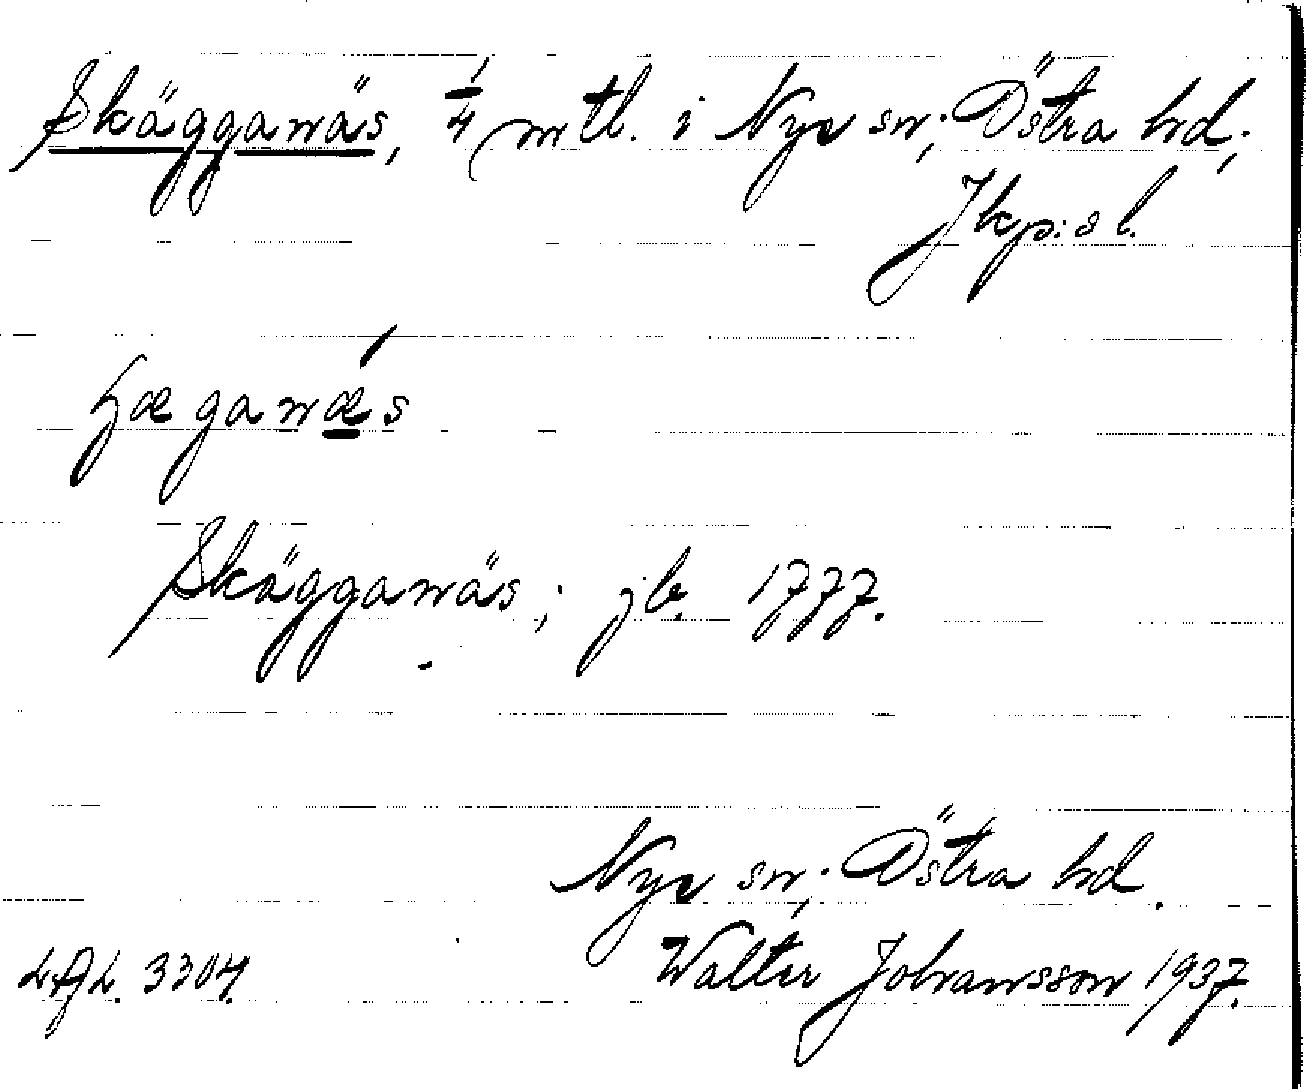 Skägganäs, 1/4 mtl. i Nye sn; Östra hd;
Jkp:s l.
ɧæganǽ̱s
Skägganäs; jb. 1777.
Nye sn; Östra hd.
Walter Johansson 1937.